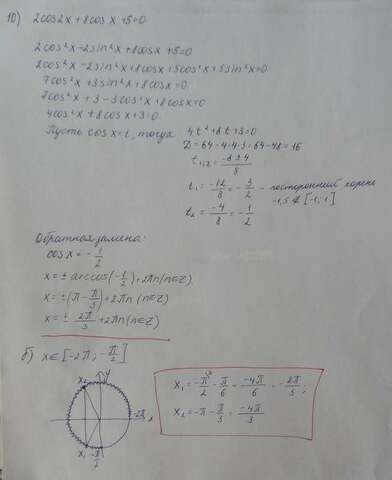 10) 2cos2x + 8cosx + 5 = 0
2cos²x - 2sin²x + 8cosx + 5 = 0
2cos²x - 2sin²x + 8cosx + 5cos²x + 5sin²x = 0
7cos²x + 3sin²x + 8cosx = 0
7cos²x + 3 - 3cos²x + 8cosx = 0
4cos²x + 8cosx + 3 = 0
Пусть cosx = t, тогда 4t² + 8t + 3 = 0
D = 64 - 4·4·3 = 64 - 48 = 16
t₁,₂ = (-8 ± 4)/8
t₁ = -12/8 = -3/2 - посторонний корень
-1,5 ∉ [-1; 1]
t₂ = -4/8 = -1/2
Обратная замена:
cosx = -1/2
x = ± arccos(-1/2) + 2πn (n∈Z)
x = ±(π - π/3) + 2πn (n∈Z)
x = ± 2π/3 + 2πn (n∈Z)
б) x ∈ [-2π; -π/2]
x₁ = -π/2 - π/6 = -4π/6 = -2π/3;
x₂ = -π - π/3 = -4π/3
y
x₂
-2π
x
x₁
-π/2